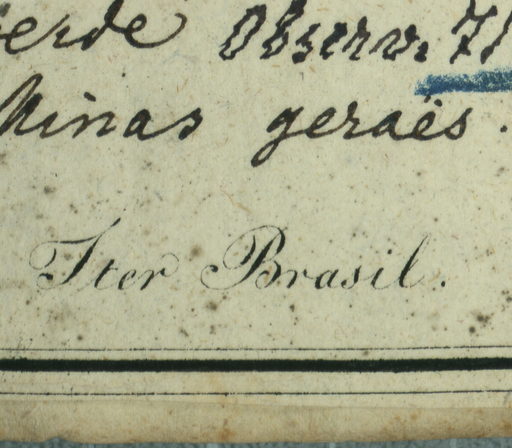 Observ. 71
Minas geraës.
Iter Brasil.